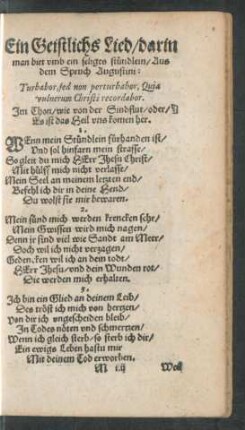 Ein Geistlichs Lied/darin
man bitt vmb ein seliges stündlein/Aus
dem Spruch Augustini:
Turbabor, sed non perturbabor, Quia
vulnerum Christi recordabor.
Im Thon/wie von der Sindflut/oder/
Es ist das Heil vns komen her.
1.
WEnn mein Stündlein fürhanden ist/
Vnd sol hinfarn mein strasse/
So gleit du mich HErr Jhesu Christ/
Mit hülff mich nicht verlasse/
Mein Seel an meinem letzten end/
Befehl ich dir in deine Hend/
Du wolst sie mir bewaren.
2.
Mein sünd mich werden krencken sehr/
Mein Gwissen wird mich nagen/
Denn jr sind viel wie Sandt am Meer/
Doch wil ich nicht verzagen/
Gedencken wil ich an dein todt/
HErr Jhesu/vnd dein Wunden rot/
Die werden mich erhalten.
3.
Ich bin ein Glied an deinem Leib/
Des tröst ich mich von hertzen/
Von dir ich vngescheiden bleib/
In Todes nöten vnd schmertzen/
Wenn ich gleich sterb/so sterb ich dir/
Ein ewigs Leben hastu mir
Mit deinem Tod erworben.
Weil